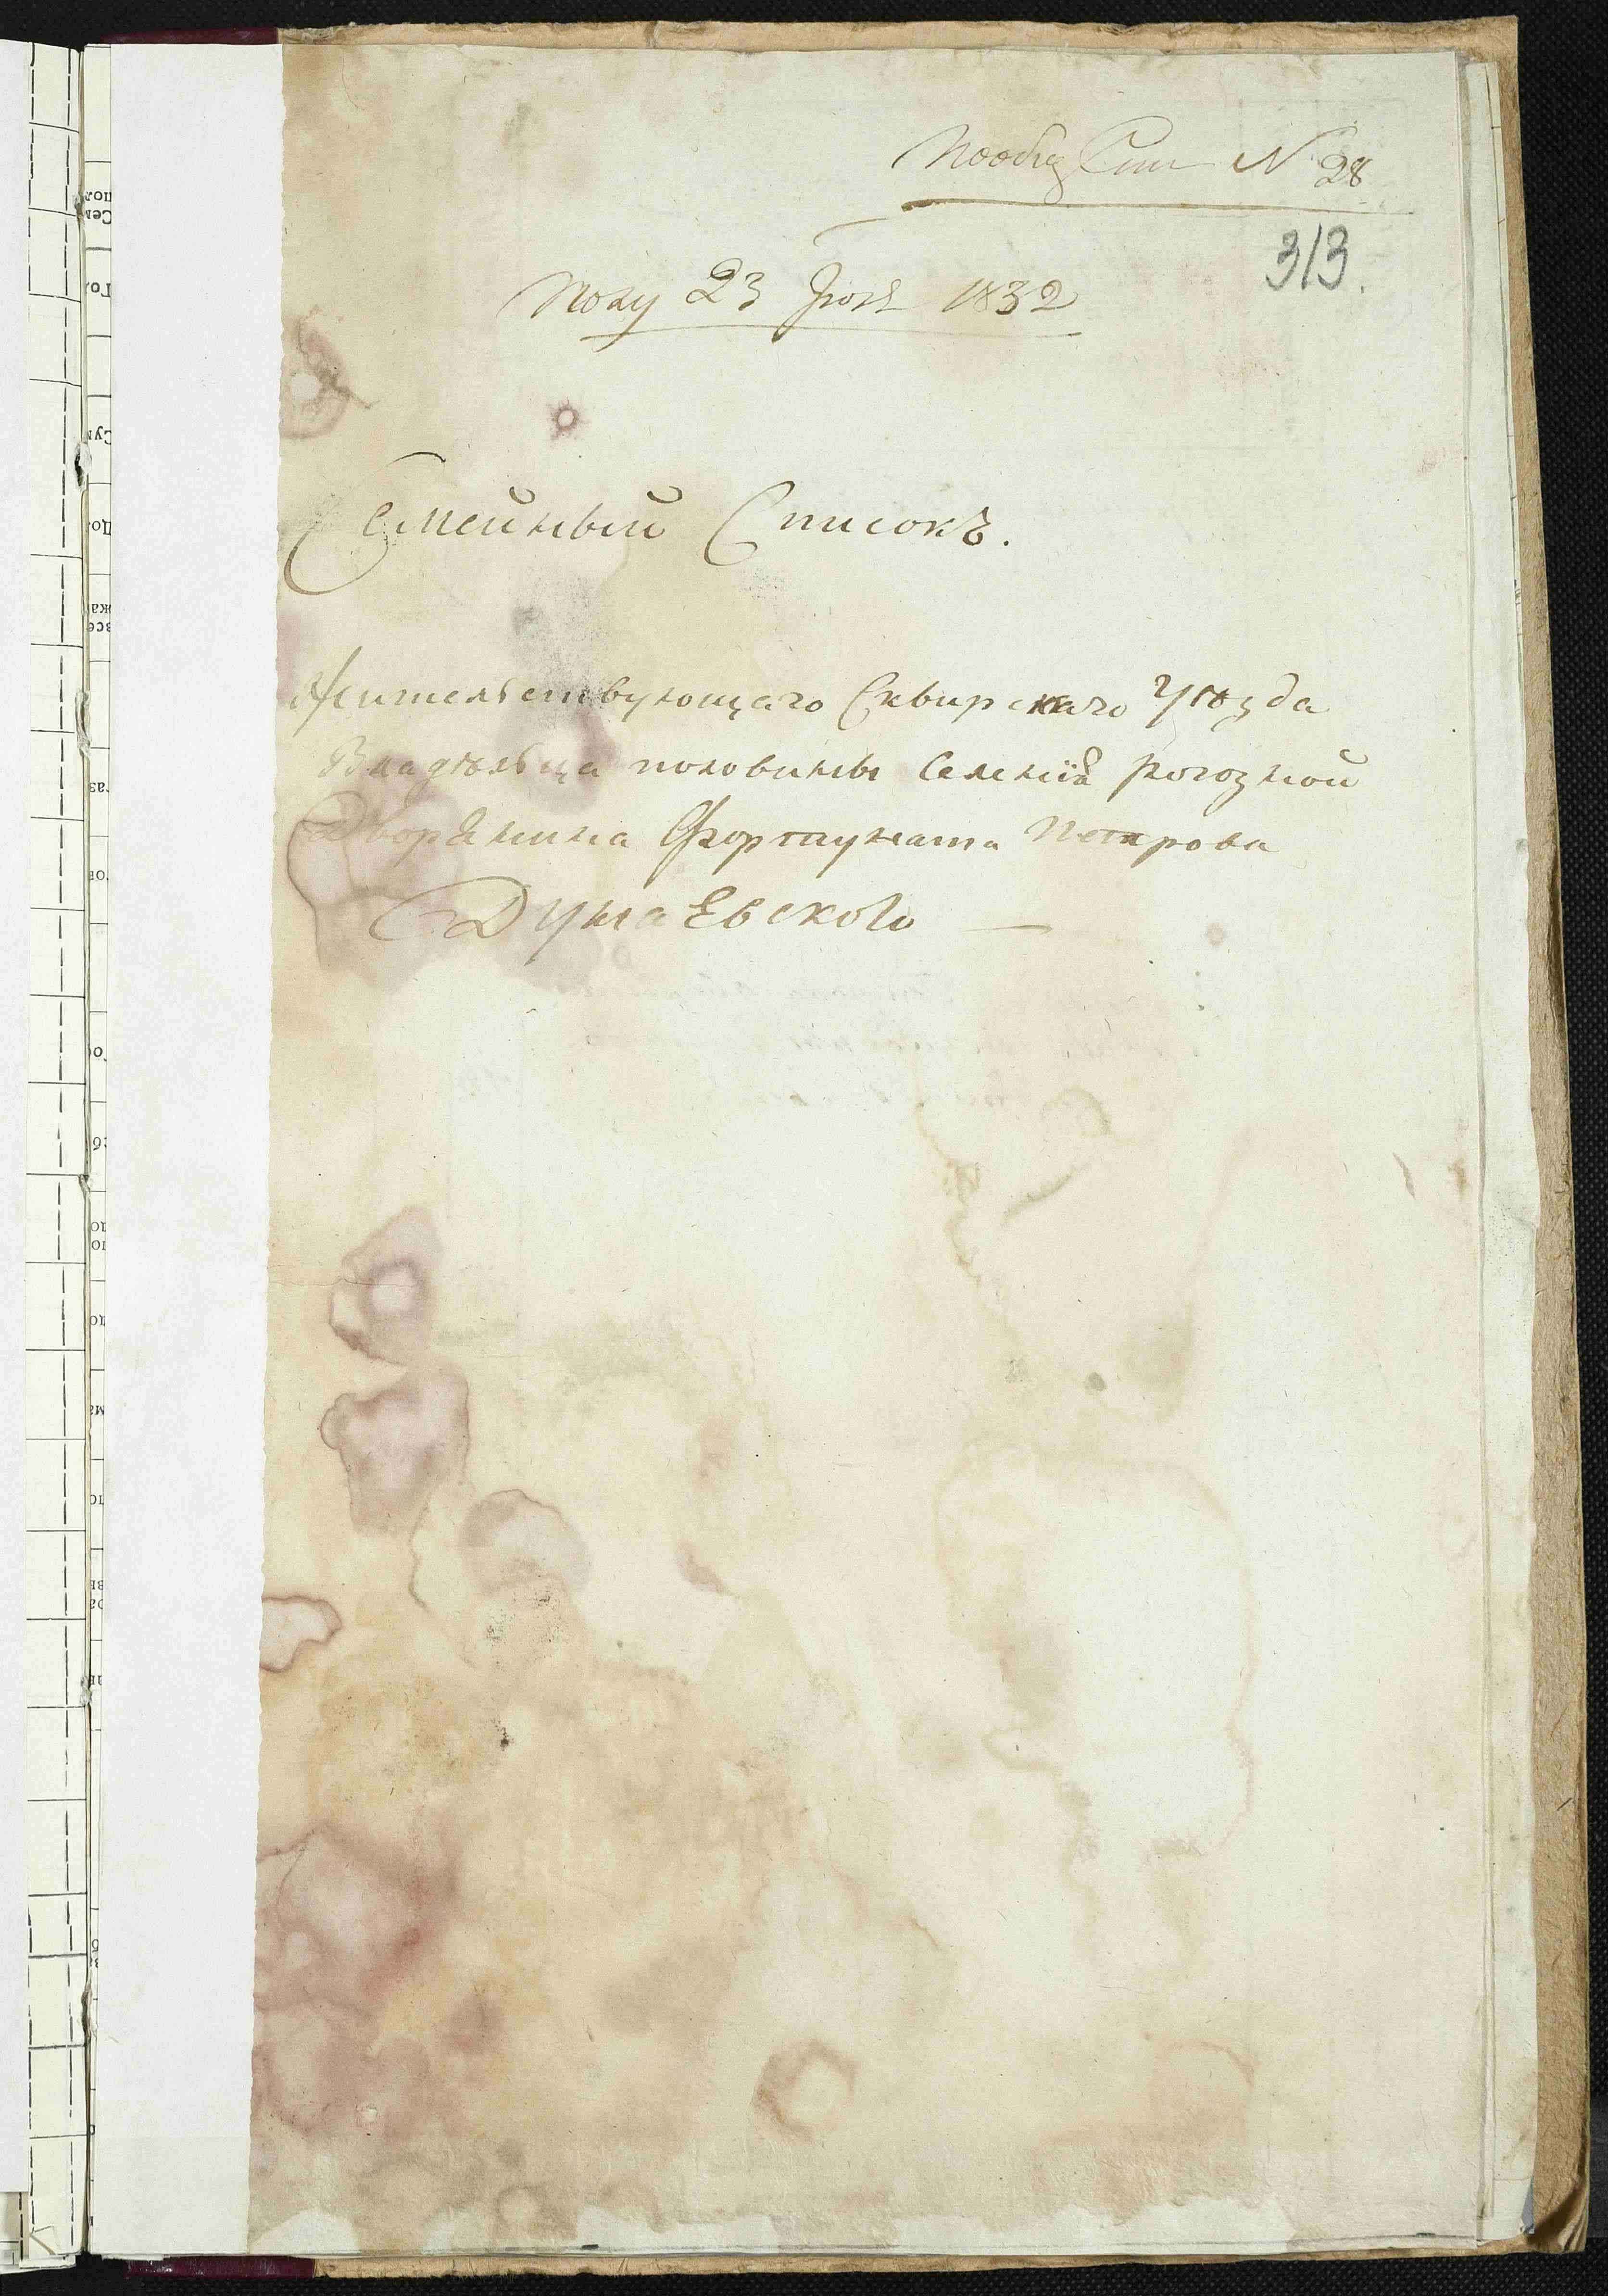 Пообщ Спи N 28
313.
Полу 23 Июля 1832
Семейный Списокъ.
Жительствующаго Сквирскаго Уѣзда
Владѣльца половины Селенія Рогозной
Дворянина Фортуната Петрова
Дунаевского —